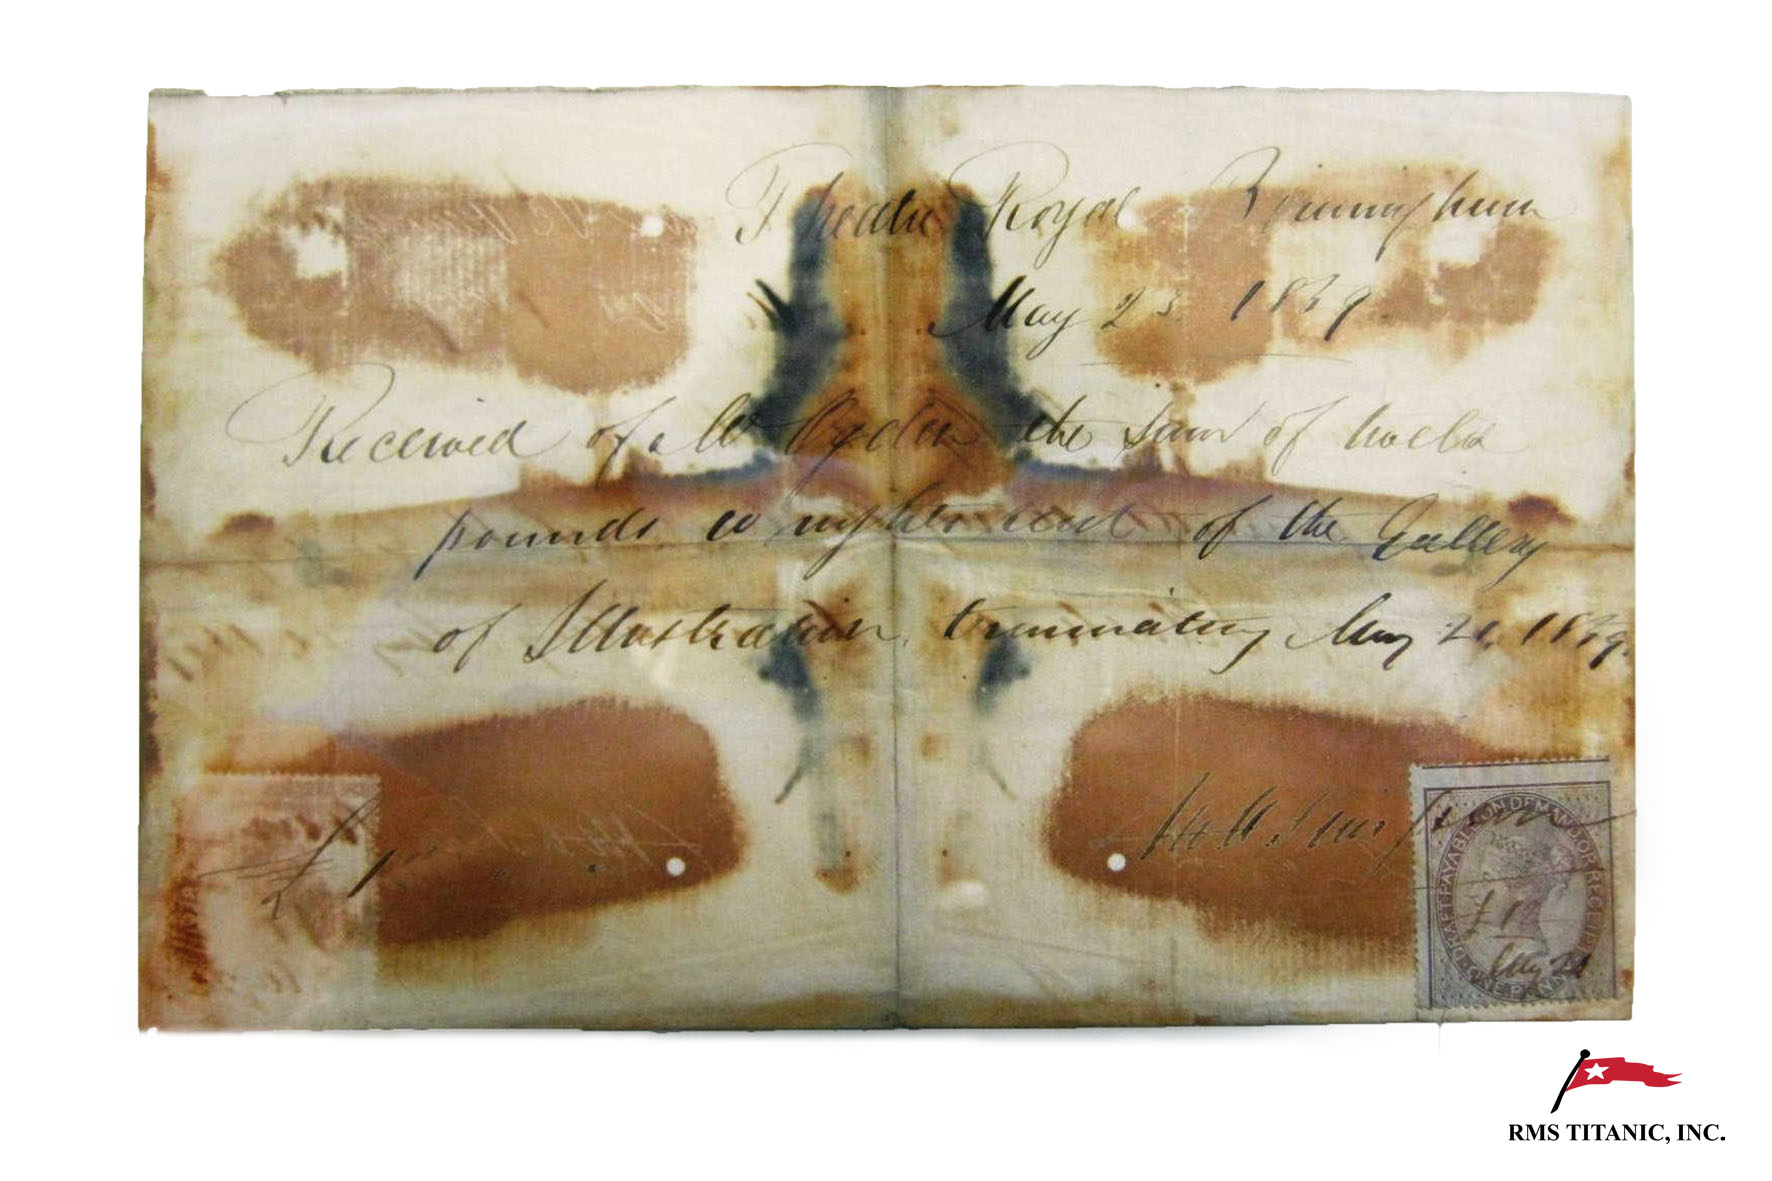 Theatre Royal Birmingham
May 23 1839
Received of Mr the sum of twelve
pounds 10 nights rent of the Gallery
of Illustration, terminating May 21, 1839.
M. H. Simpson
DRAFT PAYABLE ON DEMAND OR RECEIPT
ONE PENNY
£12
May 21
RMS TITANIC, INC.